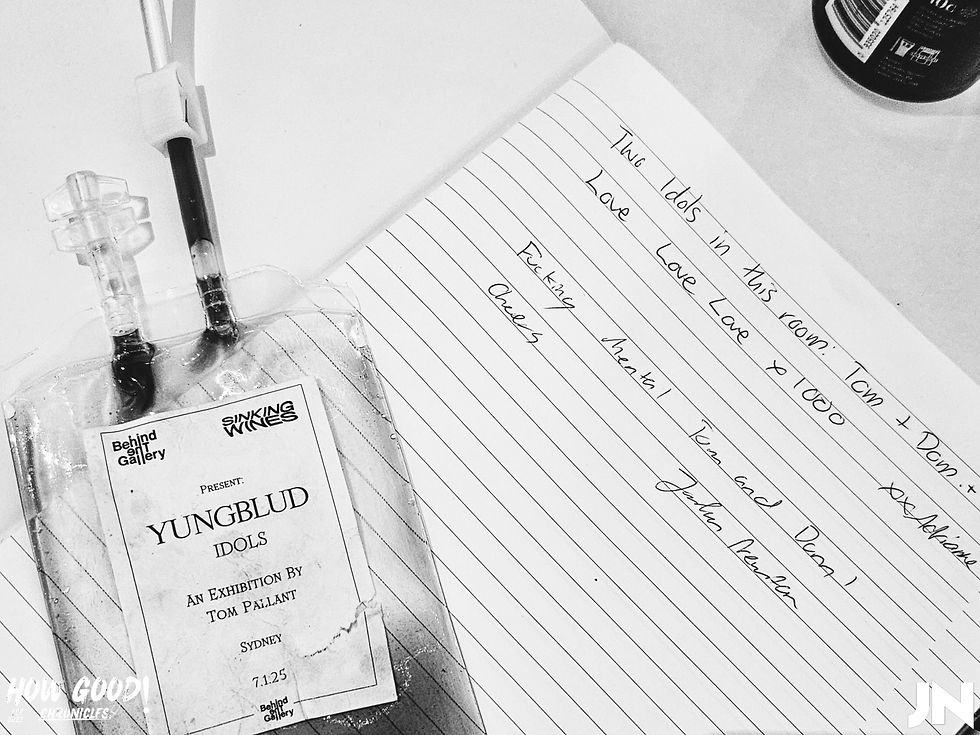 Behind
eriT
Gallery
SINKING
WINES
PRESENT:
YUNGBLUD
IDOLS
AN EXHIBITION BY
TOM PALLANT
SYDNEY
7.1.25
Behind
eriT
Gallery
Two Idols in this room: Tom + Dom. +
Love Love Love x 1000
xx Adrianne
Fucking Mental Tom and Dom!
Cheers
HOW GOOD!
CHRONICLES
JN